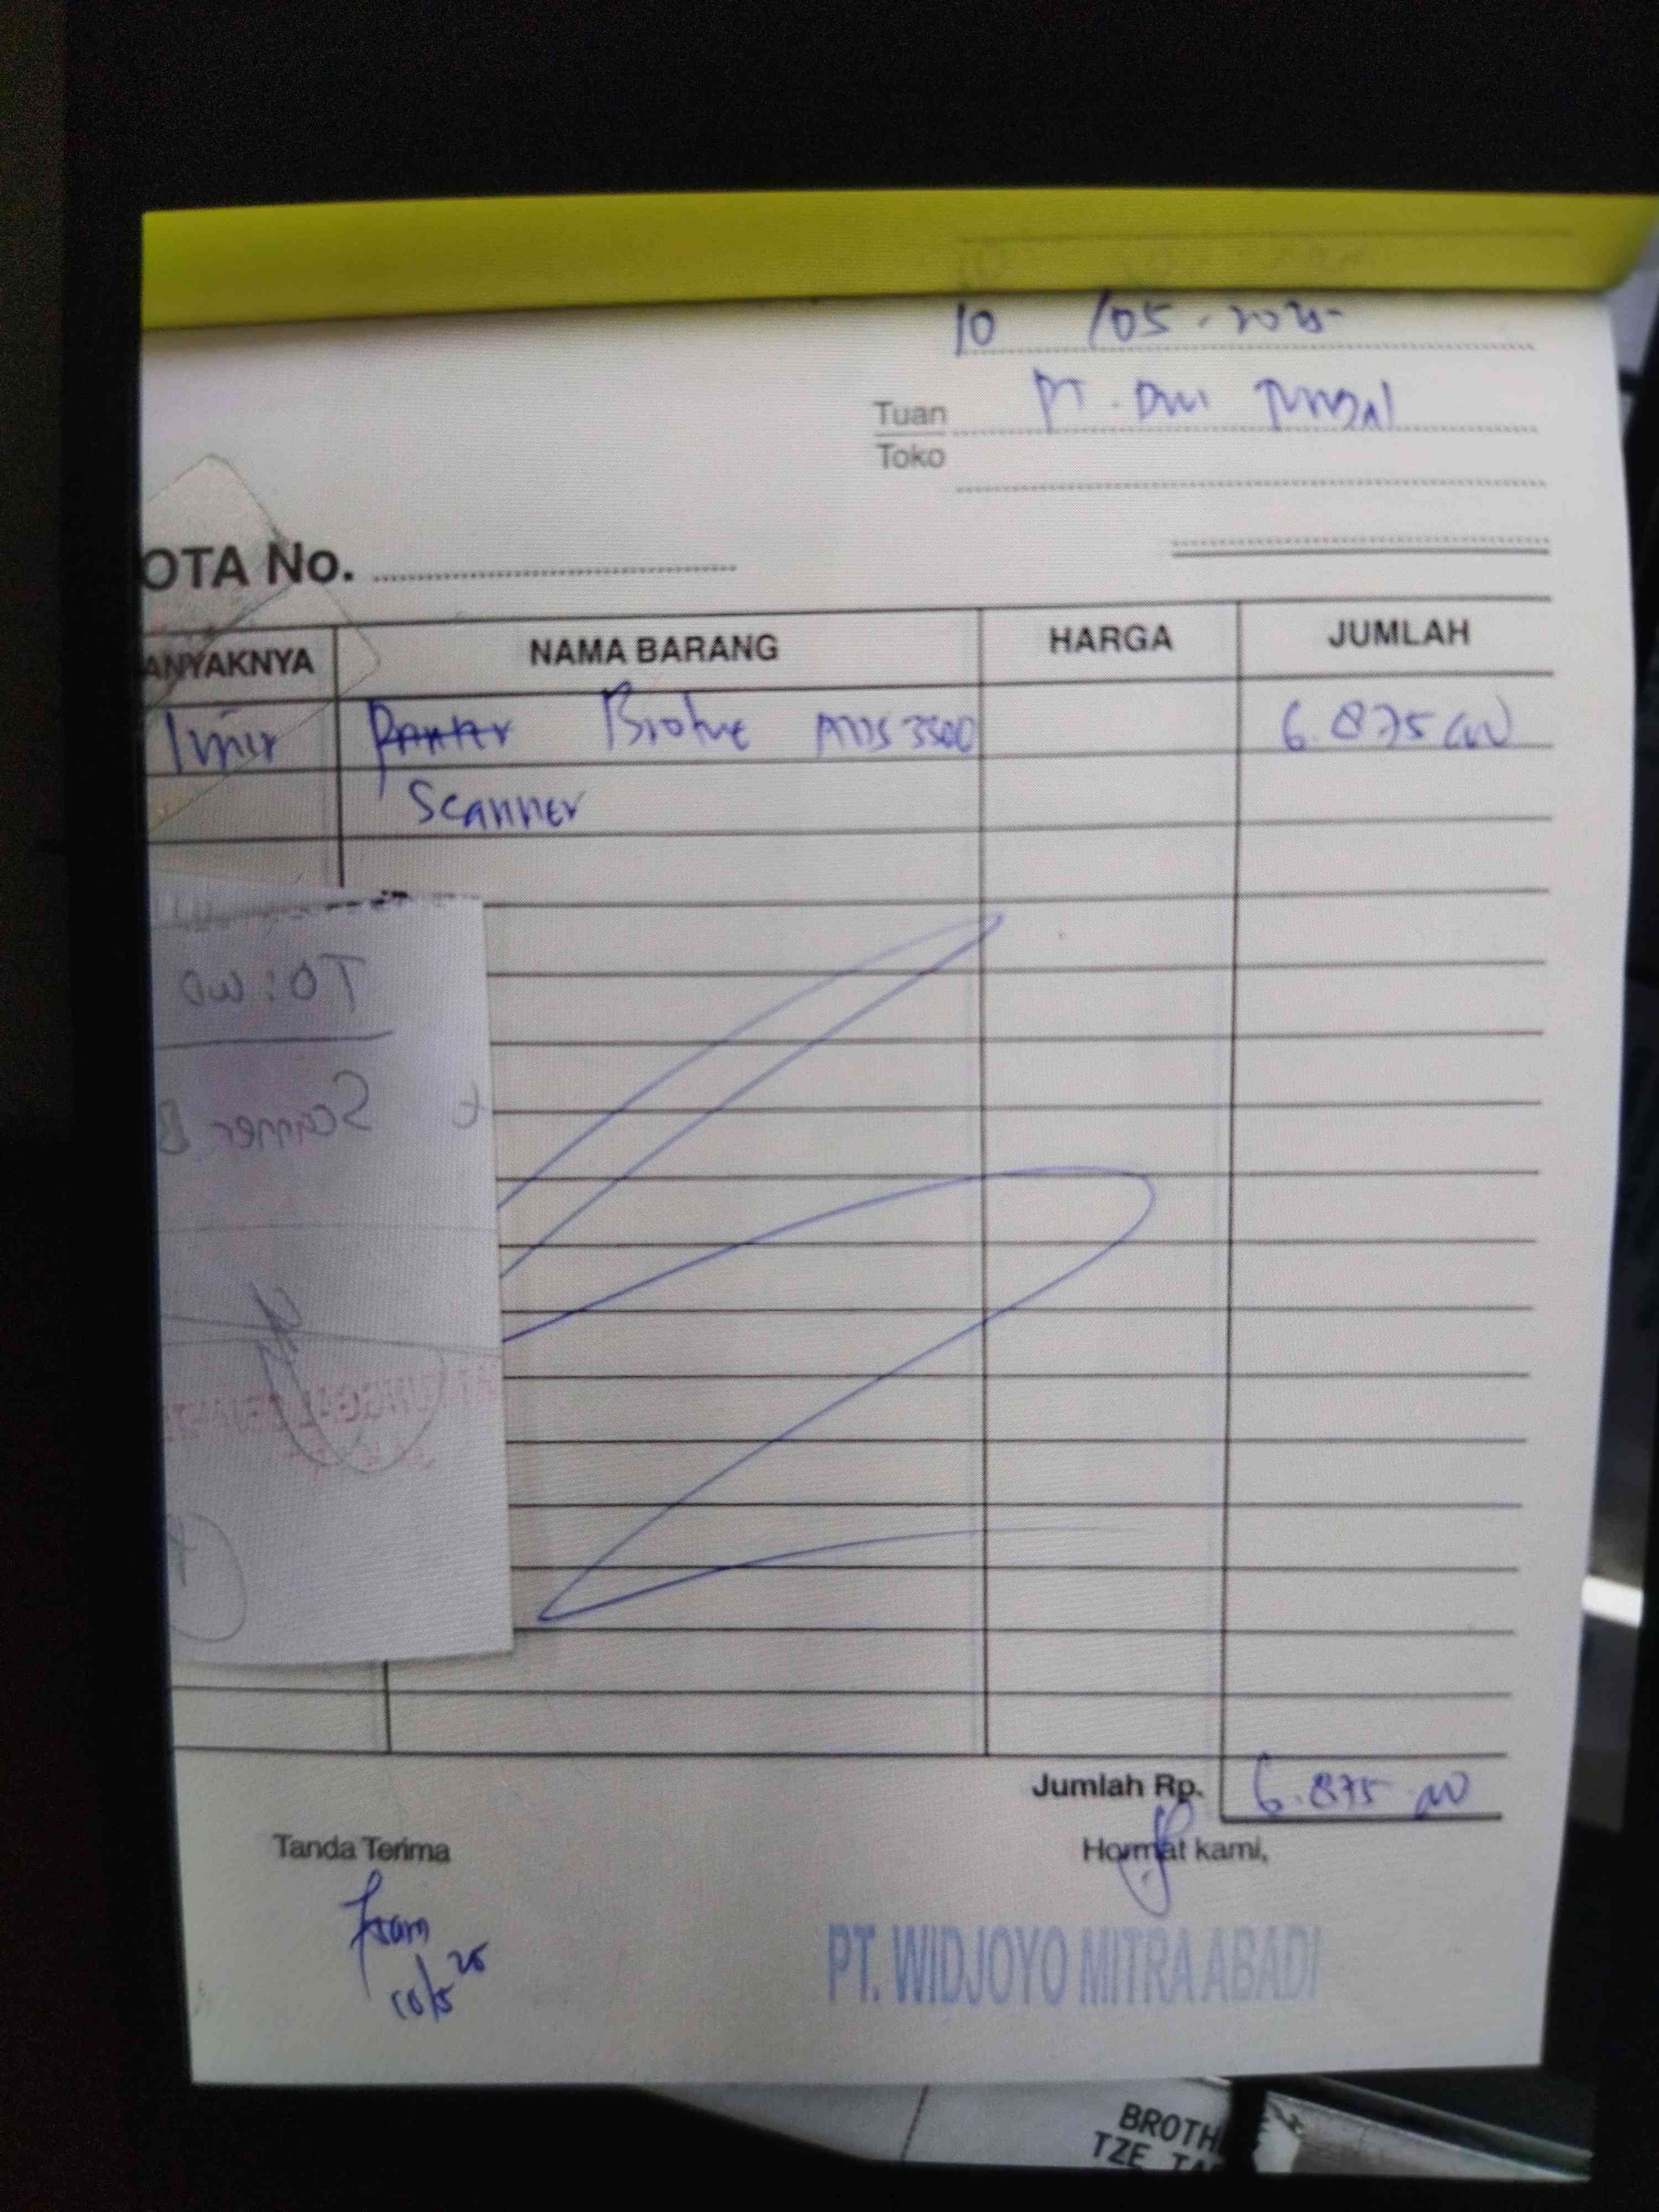 10 /05-2025
Tuan PT. Dwi Tunggal
Toko
OTA No.
ANYAKNYA NAMA BARANG HARGA JUMLAH
1 unit Printer Brother ADS 3500 6.875.000
Scanner
TO: WD
Scanner B
Jumlah Rp. 6.875.000
Tanda Terima Hormat kami,
10/5 25
PT. WIDJOYO MITRA ABADI
BROTH
TZE TA